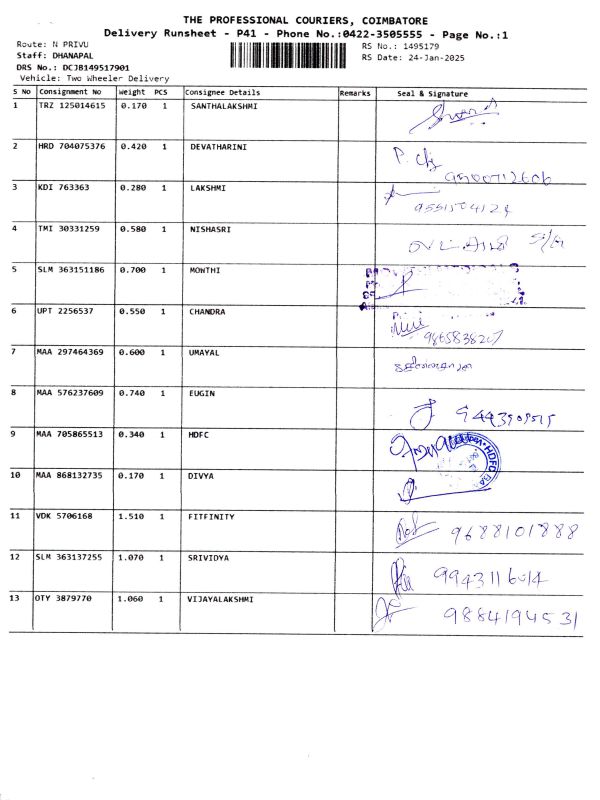 THE PROFESSIONAL COURIERS, COIMBATORE
Delivery Runsheet - P41 - Phone No.:0422-3505555 - Page No.:1
Route: N PRIVU
RS No.: 1495179
Staff: DHANAPAL
RS Date: 24-Jan-2025
DRS No.: DCJB149517901
Vehicle: Two Wheeler Delivery
S No Consignment No Weight PCS Consignee Details Remarks Seal & Signature
1 TRZ 125014615 0.170 1 SANTHALAKSHMI
2 HRD 704075376 0.420 1 DEVATHARINI
3 KDI 763363 0.280 1 LAKSHMI
4 TMI 30331259 0.580 1 NISHASRI
5 SLM 363151186 0.700 1 MONTHI
6 UPT 2256537 0.550 1 CHANDRA
7 MAA 297464369 0.600 1 UMAYAL
8 MAA 576237609 0.740 1 EUGIN
9 MAA 705865513 0.340 1 HDFC
HDFC
10 MAA 868132735 0.170 1 DIVYA
11 VDK 5706168 1.510 1 FITFINITY 9688101888
12 SLM 363137255 1.070 1 SRIVIDYA
13 OTY 3879770 1.060 1 VIJAYALAKSHMI 9884194531